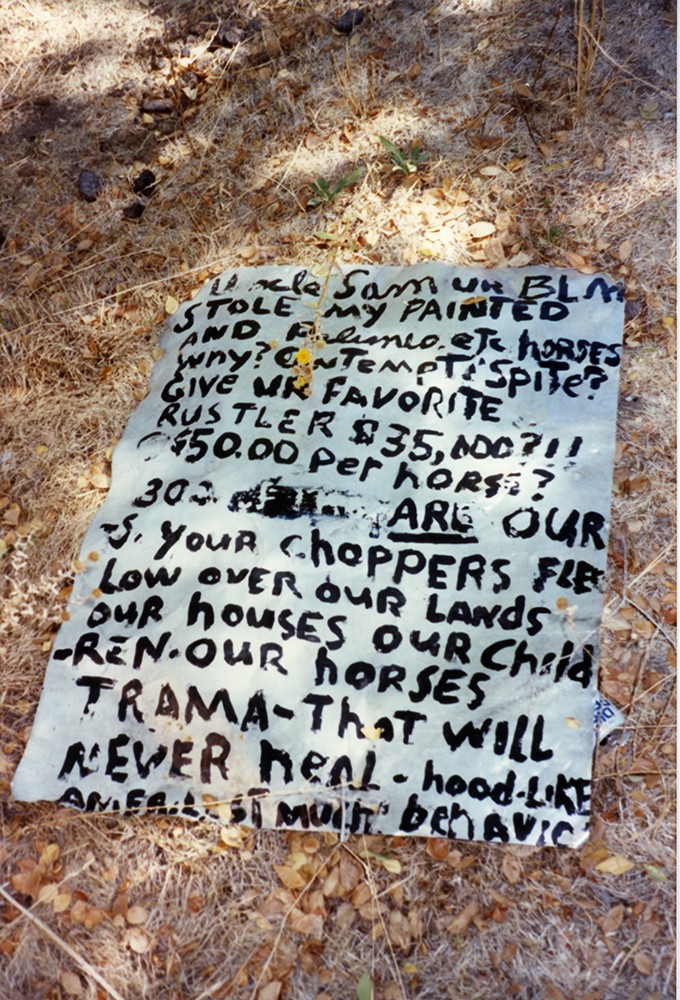 Uncle Sam UR BLM
STOLE MY PAINTED
AND etc horses
Why? CONTEMPT! SPITE?
GIVE UR FAVORITE
RUSTLER $35,000?!!
$50.00 per horse?
ARE OUR
S. YOUR ChOPPERS FLE
LOW OVER OUR LANDS
OUR hOUSES OUR Child
-REN. OUR hORSES
TRAMA-ThAT WILL
NEVER heAL - hood-LIKE
MUCH behAVIO